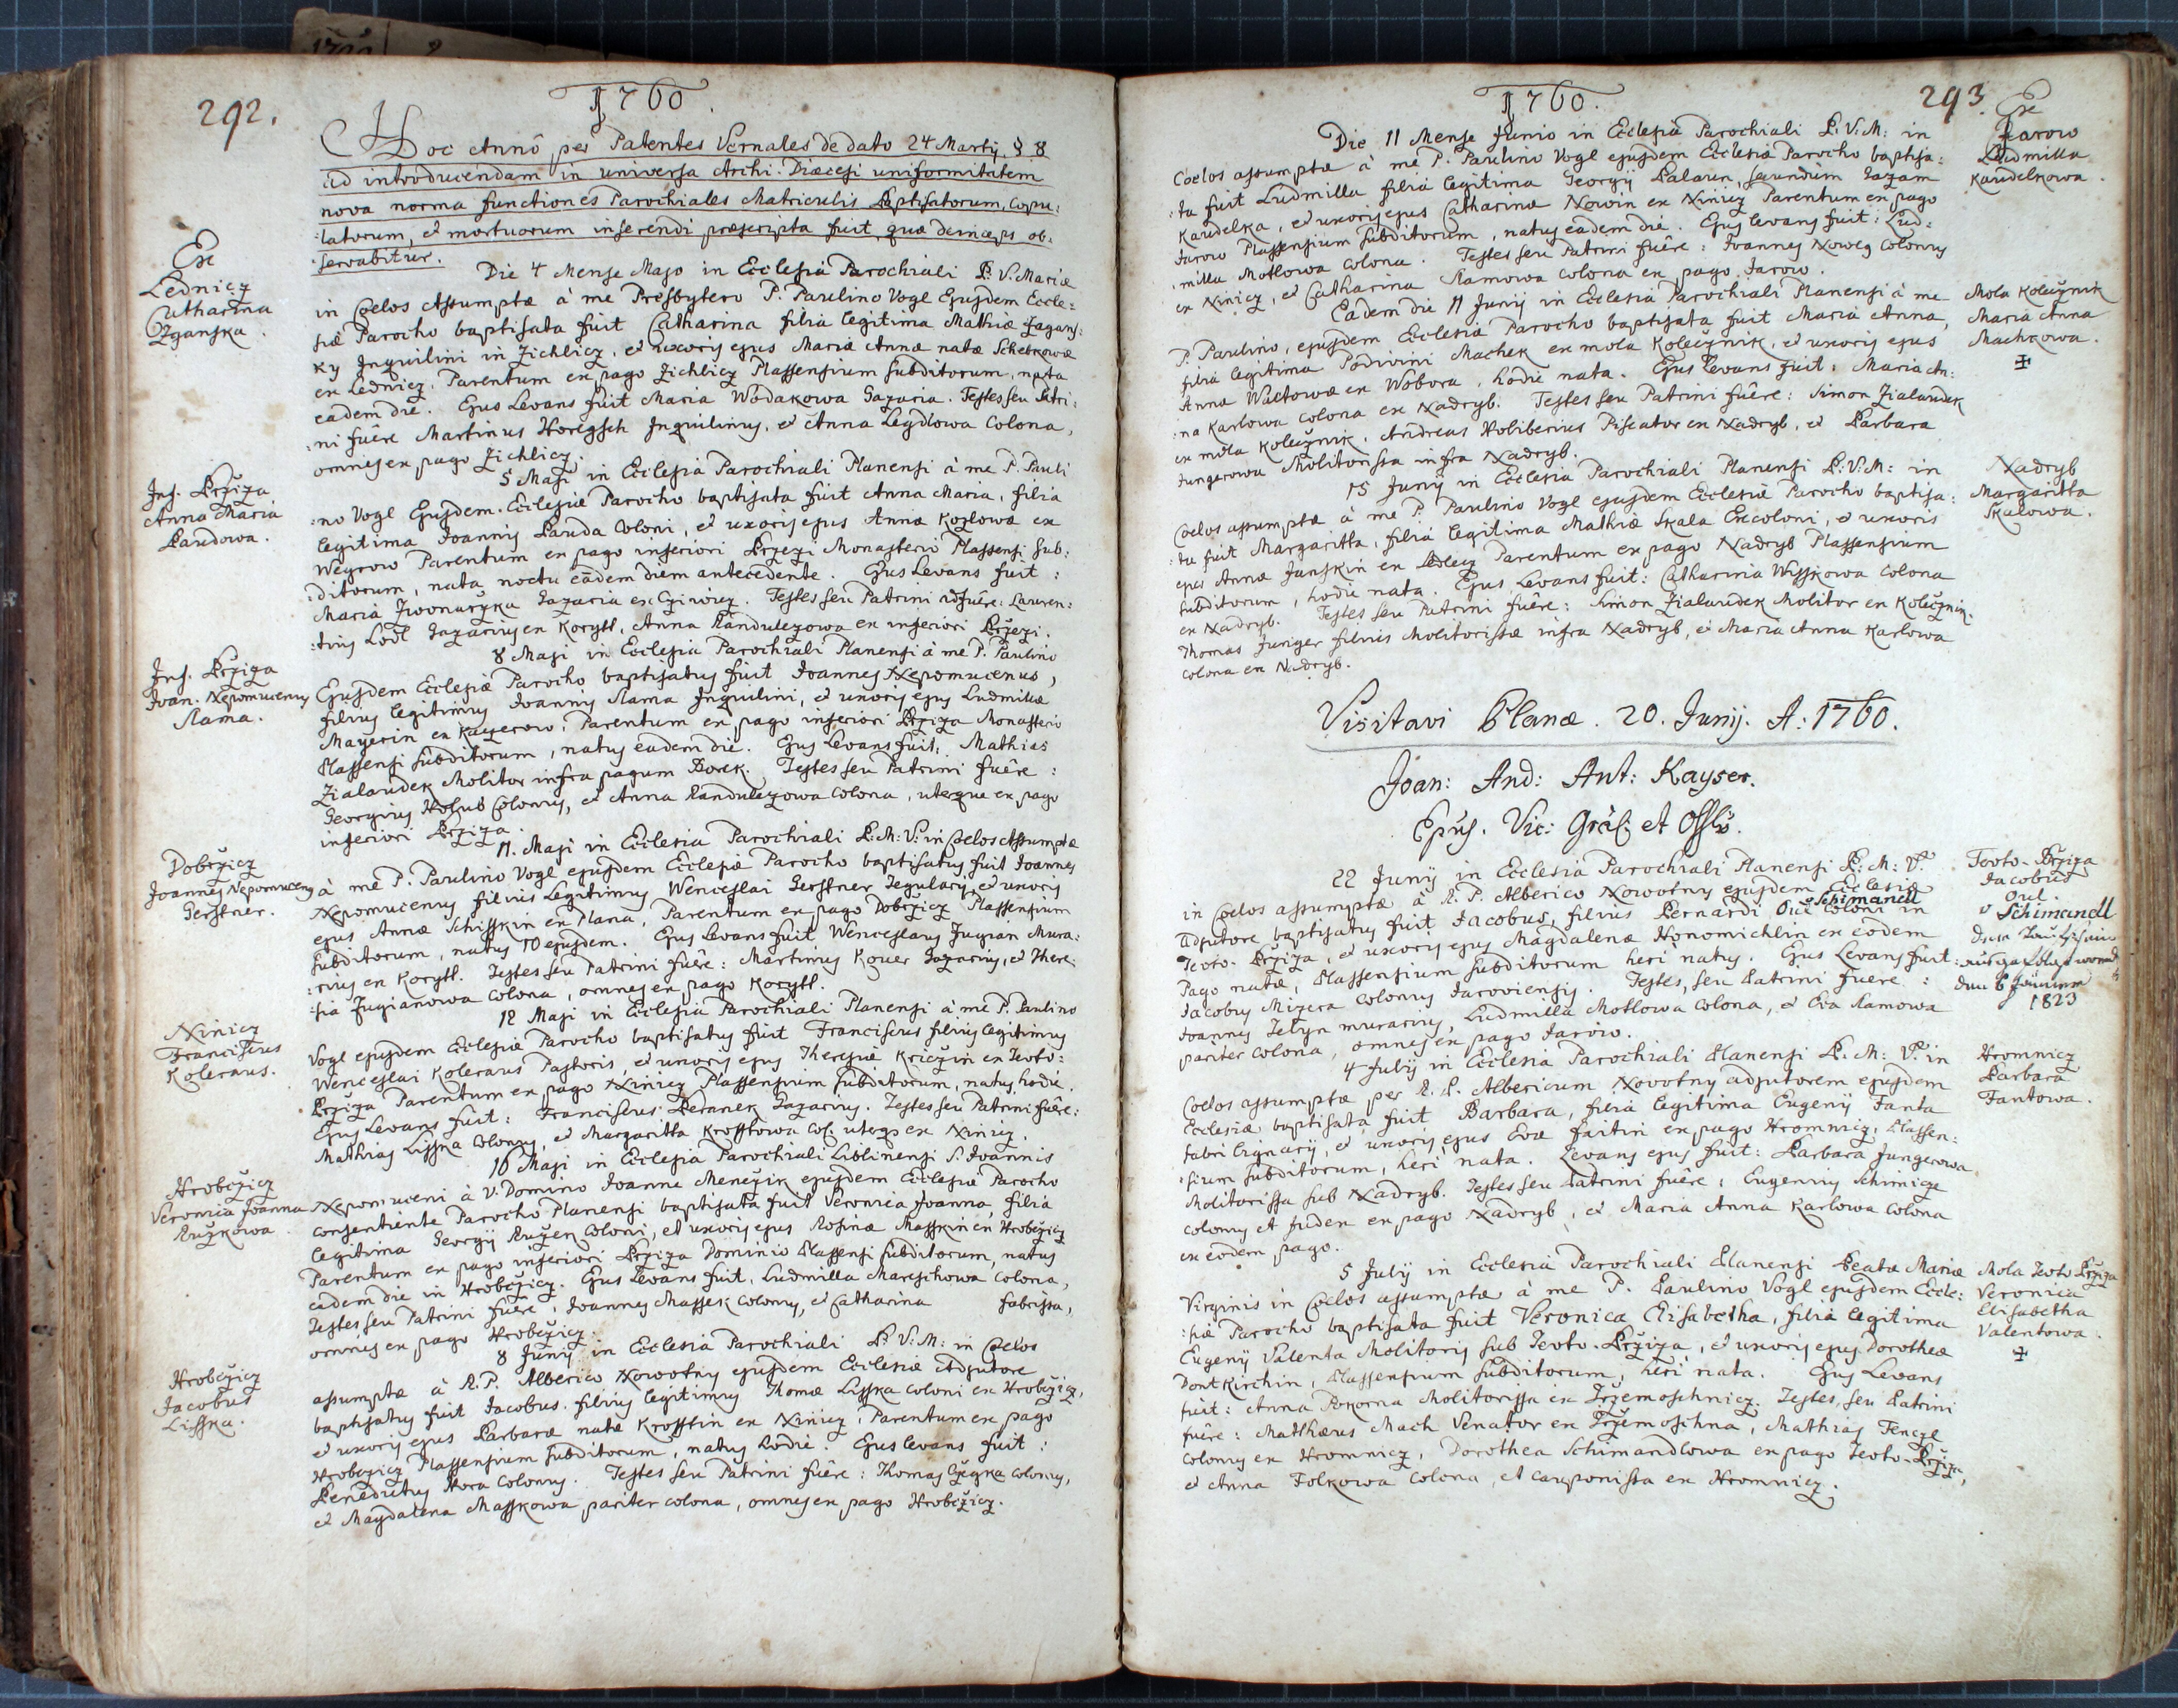 292.
1760.
Hoc Anno per Patentes Vernales de dato 24 Martij. § 8
ad introducendam in universa Archi-Diœcesi uniformitatem
nova norma functiones Parochiales Matriculis Baptisatorum, Copu-
:latorum, et mortuorum inserendi præscripta fuit, quæ deinceps ob-
:servabitur.
Ex
Lednicz
Catharina
Zganska.
Die 4 Mense Majo in Ecclesia Parochiali B: V. Mariæ
in Cœlos Assumptæ à me Presbytero P. Paulino Vogl Ejusdem Eccle:
siæ Parocho baptisata fuit Catharina filia legitima Mathiæ Zagans:
ky Inquilini in Zichlicz, et uxoris ejus Mariæ Annæ natæ Schebkowæ
ex Lednicz, Parentum ex pago Zichlicz Plassensium subditorum, nata
eadem die. Ejus Levans fuit Maria Wodakowa Gazaria. Testes seu Patri:
:ni fuêre Martinus Horegsch Inquilinus, et Anna Legdlowa Colona,
omnes ex pago Zichlicz.
Inf. Brziza
Anna Maria
Baudowa.
5 Maji in Ecclesia Parochiali Planensi à me P. Pauli
:no Vogl Ejusdem Ecclesiæ Parocho baptisata fuit Anna Maria, filia
legitima Joannis Bauda Coloni, et uxoris ejus Annæ Kozlowæ ex
Wegrow Parentum ex pago inferiori Brzezi Monasterio Plassensi sub:
:ditorum, nata noctu eadem diem antecedente. Ejus Levans fuit:
Maria Zwonarzka Gazaria ex Cziwicz. Testes seu Patrini fuêre: Lauren:
:tius Lodl Gazarius ex Korytl, Anna Randulezowa ex inferiori Brzezi.
Inf. Brziza
Joan. Nepomucenus
Slama.
8 Maji in Ecclesia Parochiali Planensi à me P. Paulino
Ejusdem Ecclesiæ Parocho baptisatus fuit Joannes Nepomucenus,
filius legitimus Joannis Slama Inquilini, et uxoris ejus Ludmillæ
Mayerin ex Kaczerow, Parentum ex pago inferiori Brziza Monasterio
Plassensi subditorum, natus eadem die. Ejus Levans fuit: Mathias
Zialaudek Molitor infra pagum Borek. Testes seu Patrini fuêre:
Georgius Holub Colonus, et Anna Randulezowa Colona, uterque ex pago
inferiori Brziza.
Dobrzicz
Joannes Nepomucenus
Gerstner.
11. Maji in Ecclesia Parochiali B: M: V: in Cœlos Assumptæ
à me P. Paulino Vogl ejusdem Ecclesiæ Parocho baptisatus fuit Joannes
Nepomucenus filius Legitimus Wenceslai Gerstner Tegularij, et uxoris
ejus Annæ Schisskin ex Plana, Parentum ex pago Dobrzicz Plassensium
subditorum, natus 10 ejusdem. Ejus Levans fuit Wenceslaus Jugian Mura:
:rius ex Korytl. Testes seu Patrini fuêre: Martinus Kover Gazarius, et There:
:sia Jugianowa Colona, omnes ex pago Korytl.
Xinicz
Franciscus
Koleraus.
12 Maji in Ecclesia Parochiali Planensi à me P. Paulino
Vogl ejusdem Ecclesiæ Parocho baptisatus fuit Franciscus filius legitimus
Wenceslai Koleraus Pastoris, et uxoris ejus Theresiæ Kriczin ex Teoto:
Brziza Parentum ex pago Xinicz Plassensium subditorum, natus hodie.
Ejus Levans fuit: Franciscus Beranek Gazarius. Testes seu Patrini fuêre:
Mathias Lisska Colonus, et Margaritta Krosstowa Col. uterq3 ex Xinicz.
Hrobczicz
Veronica Joanna
Ružkowa.
16 Maji in Ecclesia Parochiali Liblinensi S. Joannis
Nepomuceni à V. Domino Joanne Menczik ejusdem Ecclesiæ Parocho
consentiente Parocho Planensi baptisata fuit Veronica Joanna, filia
legitima Georgij Ružek Coloni, et uxoris ejus Rosinæ Masskin ex Hrobczicz
Parentum ex pago inferiori Brziza Dominio Plassensi subditorum, natus
eadem die in Hrobczicz. Ejus Levans fuit, Ludmilla Mareschowa Colona,
Testes seu Patrini fuêre: Joannes Massek Colonus, et Catharina fabrissa,
omnes ex pago Hrobczicz.
Hrobczicz
Jacobus
Lisska.
8 Junij in Ecclesia Parochiali B: V: M: in Cœlos
assumptæ à R. P. Alberico Nowotny ejusdem Ecclesiæ Adjutore
baptisatus fuit Jacobus, filius legitimus Thomæ Lisska Coloni ex Hrobczicz,
et uxoris ejus Barbaræ natæ Krosstin ex Xinicz, Parentum ex pago
Hrobczicz Plassensium subditorum, natus hodie. Ejus levans fuit:
Benedictus Hora Colonus. Testes seu Patrini fuêre: Thomas Czegka Colonus,
et Magdalena Masskowa pariter colona, omnes ex pago Hrobczicz.
1760.
293.
Ex
Jarow
Ludmilla
Kaudelkowa.
Die 11 Mense Junio in Ecclesia Parochiali B: V: M: in
Cœlos assumptæ à me P. Paulino Vogl ejusdem Ecclesiæ Parocho baptisa:
:ta fuit Ludmilla filia legitima Georgij Balaun, secundum Gazam
Kaudelka, et uxoris ejus Catharinæ Nowin ex Xinicz Parentum ex pago
Jarow Plassensium subditorum, natus eadem die. Ejus levans fuit: Lud:
:milla Motlowa Colona. Testes seu Patrini fuêre: Joannes Noweg Colonus
ex Xinicz, et Catharina Slamowa Colona ex pago Jarow.
Mola Koleznik
Maria Anna
Machkowa.
✠
Eadem die 11 Junij in Ecclesia Parochiali Planensi à me
P. Paulino, ejusdem Ecclesiæ Parocho baptisata fuit Maria Anna,
filia legitima Podivini Machek ex mola Koleznik, et uxoris ejus
Annæ Waltowæ ex Wobora, hodie nata. Ejus Levans fuit: Maria An:
:na Karlowa Colona ex Nadryb. Testes seu Patrini fuêre: Simon Zialaudek
ex mola Koleznik, Andreas Holiberius Piscator ex Nadryb, et Barbara
Jungerowa Molitorissa infra Nadryb.
Nadryb
Margaritta
Skalowa.
15 Junij in Ecclesia Parochiali Planensi B: V: M: in
Cœlos assumptæ à me P. Paulino Vogl ejusdem Ecclesiæ Parocho baptisa:
:ta fuit Margaritta, filia legitima Mathiæ Skala Excoloni, et uxoris
ejus Annæ Janskin ex Ledecz Parentum ex pago Nadryb Plassensium
subditorum, hodie nata. Ejus Levans fuit: Catharina Wisskowa Colona
ex Nadryb. Testes seu Patrini fuêre: Simon Zialaudek Molitor ex Koleznik,
Thomas Junger filius Molitorissæ infra Nadryb, et Maria Anna Karlowa
colona ex Nadryb.
Visitavi Planæ. 20. Junij. A: 1760.
Joan: And: Ant: Kayser.
Epûs. Vic: Gräl: et Offlis.
Teoto-Brziza
Jacobus
Oul.
v Schimandl
1823
22 Junij in Ecclesia Parochiali Planensi B: M: V:
in Cœlos assumptæ à R. P. Alberico Nowotny ejusdem Ecclesiæ
v Schimandl
adjutore baptisatus fuit Jacobus, filius Bernardi Oul Coloni in
Teoto-Brziza, et uxoris ejus Magdalenæ Honomichlin ex eodem
Pago natæ, Plassensium subditorum heri natus. Ejus Levans fuit:
Jacobus Mizera Colonus Jaroviensis. Testes, seu Patrini fuere:
Joannes Tetyn murarius, Ludmilla Motlowa Colona, et Eva Slamowa
pariter Colona, omnes ex pago Jarow.
Hromnicz
Barbara
Fantowa.
4 Julij in Ecclesia Parochiali Planensi B. M: V: in
Cœlos assumptæ per R. P. Albericum Nowotny adjutorem ejusdem
Ecclesiæ baptisata fuit Barbara, filia legitima Eugenij Fanta
fabri lignarij, et uxoris ejus Evæ faitin ex pago Hromnicz, Plassen:
:sium subditorum, heri nata. Levans ejus fuit: Barbara Jungerowa
Molitorissa sub Nadryb. Testes seu Patrini fuêre: Eugenius Schimicze
colonus et Judex ex pago Nadryb, et Maria Anna Karlowa Colona
ex eodem pago.
Mola Teoto Brziza
Veronica
Elisabetha
Valentowa.
✠
5 Julij in Ecclesia Parochiali Planensi Beatæ Mariæ
Virginis in Cœlos assumptæ à me P. Paulino Vogl ejusdem Eccle:
:siæ Parocho baptisata fuit Veronica Elisabetha, filia legitima
Eugenij Valenta Molitoris sub Teoto-Brziza, et uxoris ejus Dorotheæ
Dontkirchin, Plassensium subditorum, heri nata. Ejus Levans
fuit: Anna Pokorna Molitorissa ex Trzemoschnicz. Testes, seu Patrini
fuêre: Matthæus Mach Venator ex Trzemoschna, Mathias Fencze
colonus ex Hromnicz, Dorothea Schimandlowa ex pago Teoto-Brziza,
et Anna Folkowa Colona, et cauponissa ex Hromnicz.